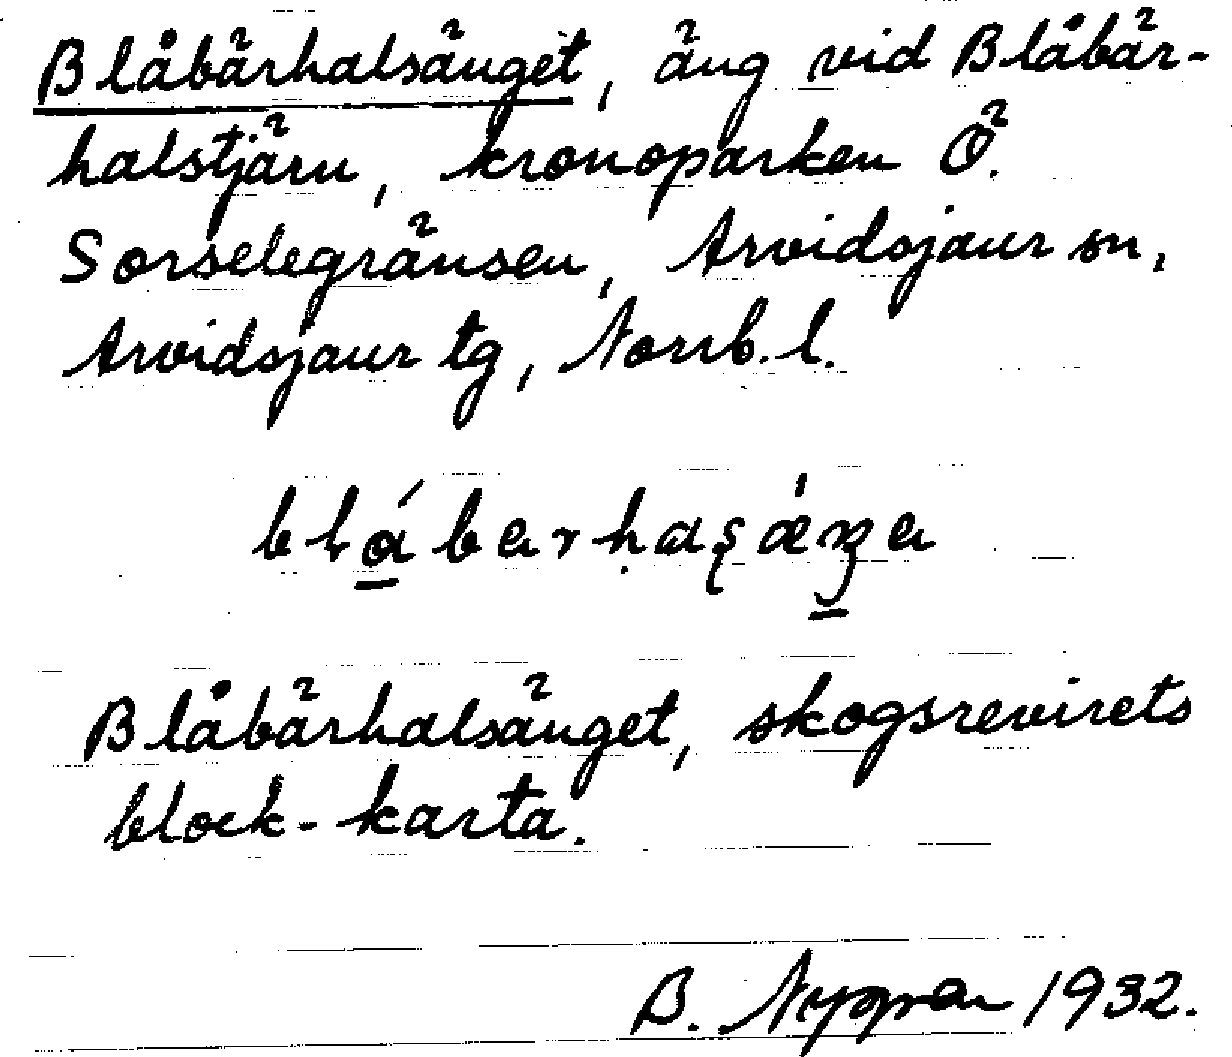 Blåbärhalsänget, äng vid Blåbär-
halstjärn, kronoparken Ö.
Sorselegränsen, Arvidsjaur sn,
Arvidsjaur tg, Norrb. l.
Blåbärhalsänget, skogsrevirets
block-karta.
B. Nygren 1932.